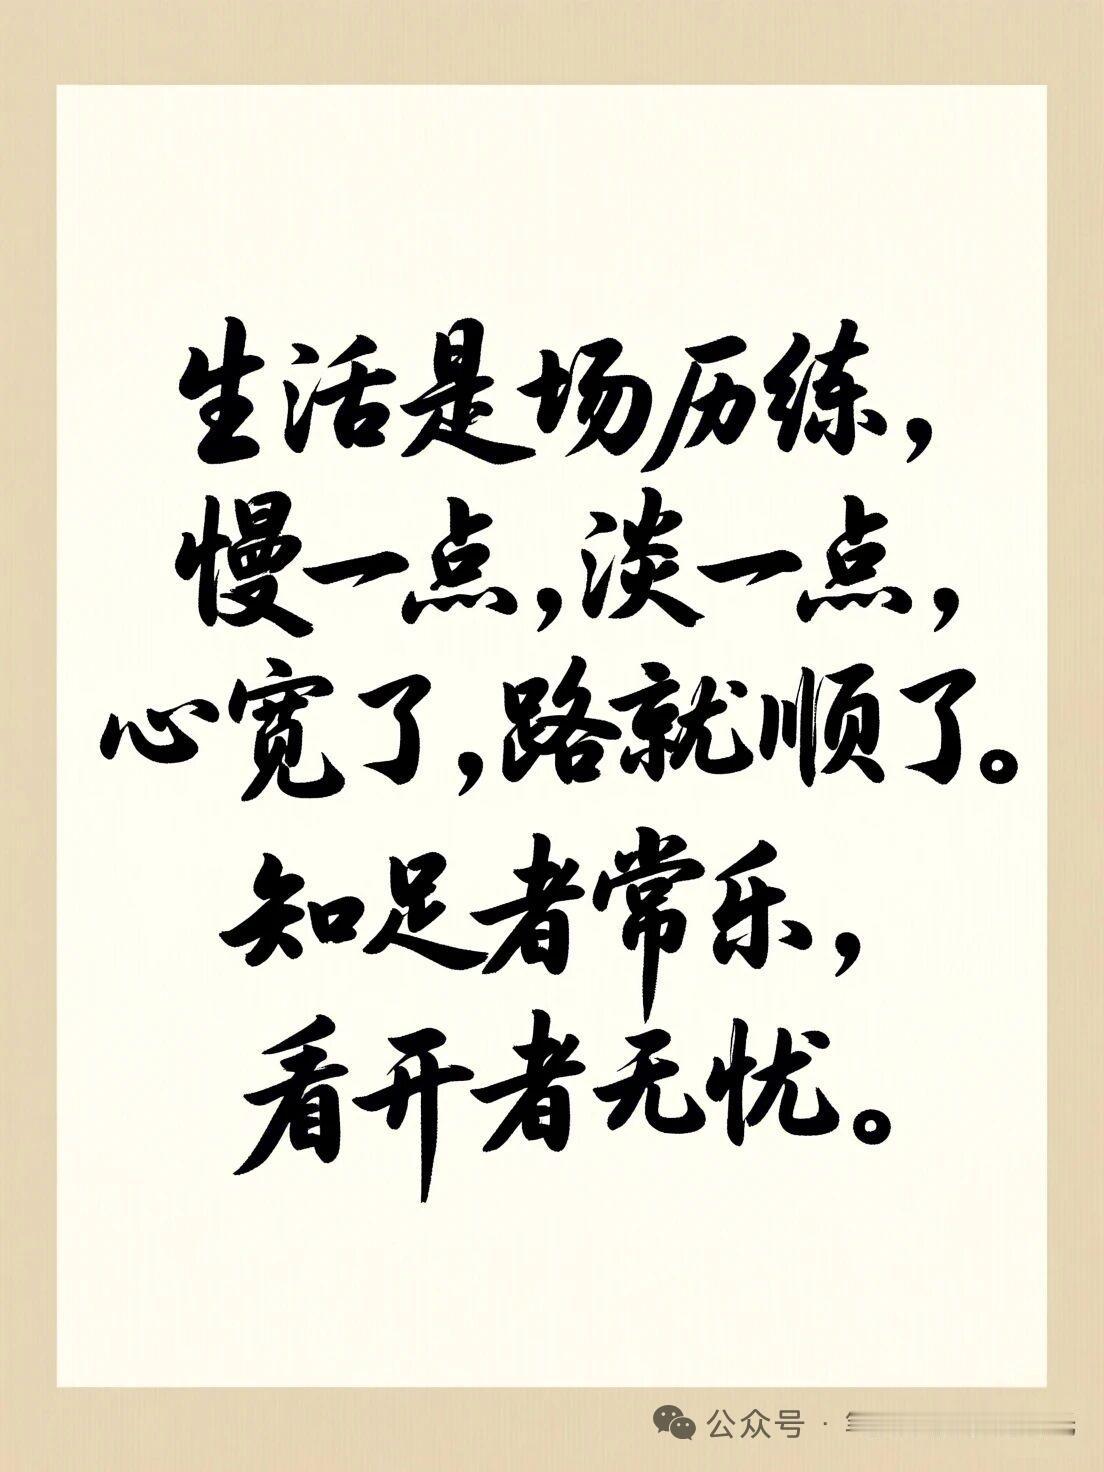 生活是场历练，
慢一点，淡一点，
心宽了，路就顺了。
知足者常乐，
看开者无忧。
公众号 ·